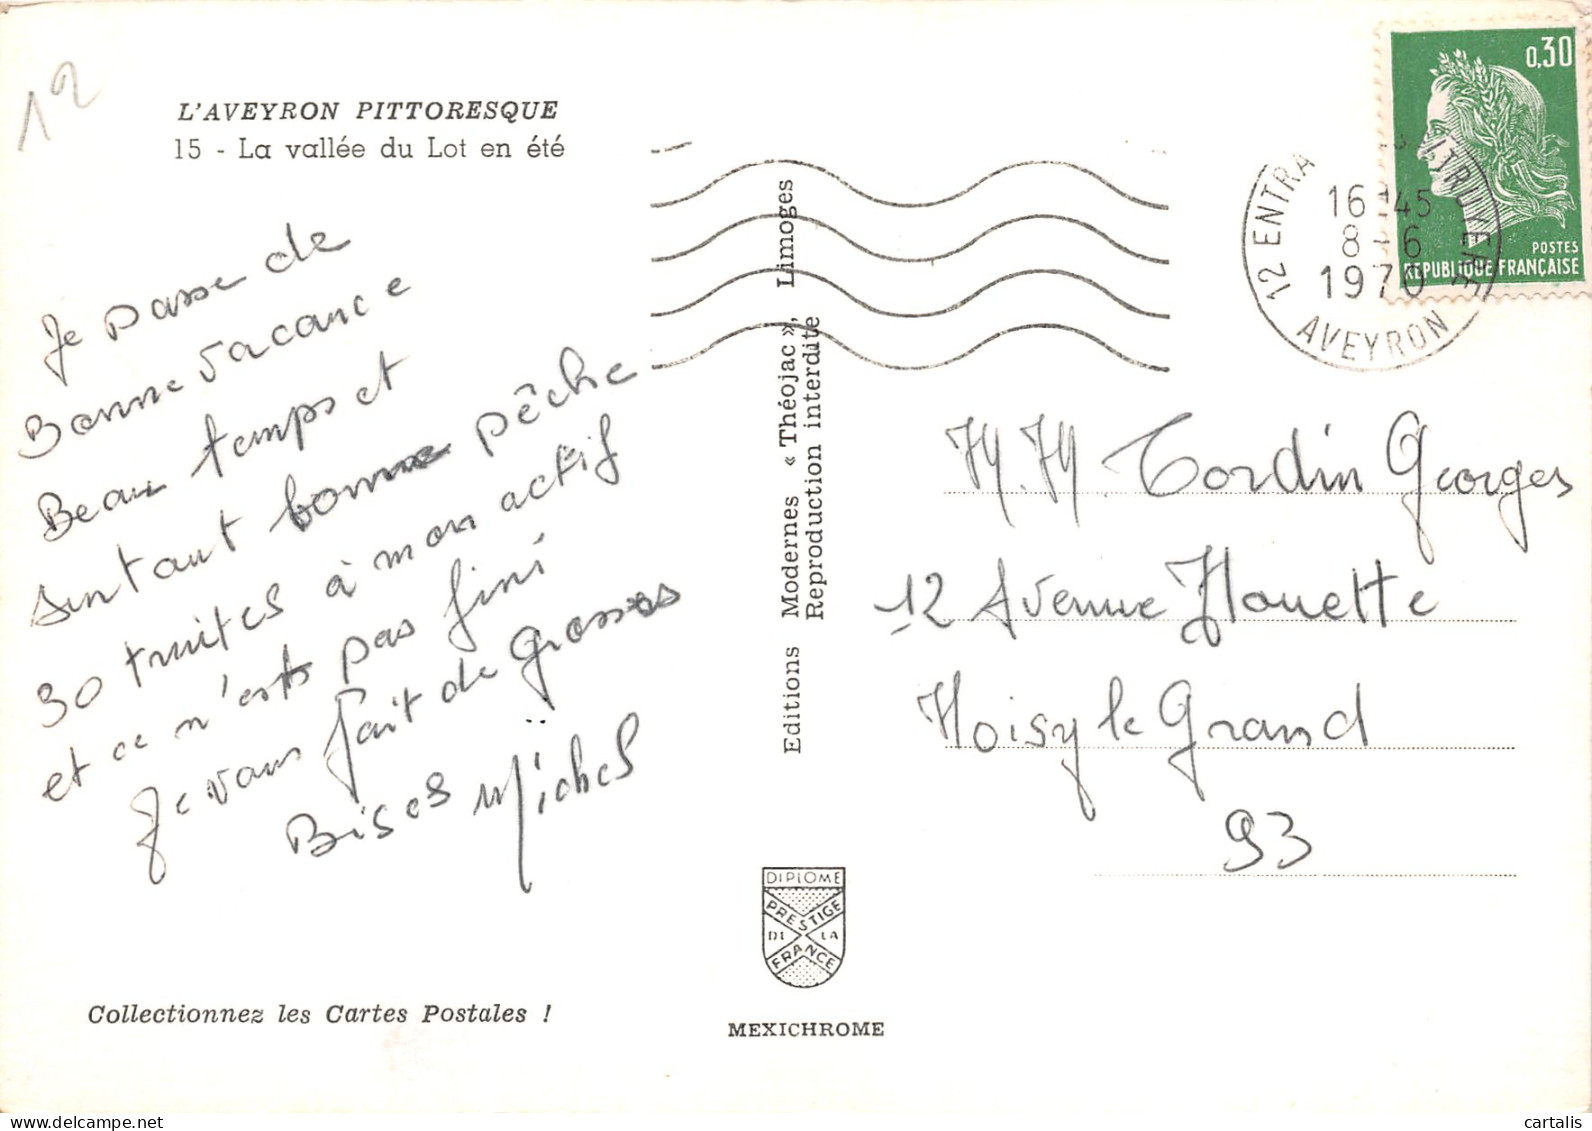 12
L'AVEYRON PITTORESQUE
15 - La vallée du Lot en été
Je passe de
Bonne vacance
Beau temps et
surtout bonne pêche
30 truites à mon actif
et ce n'est pas fini
Je vous fait de grosses
Bises Michel
Collectionnez les Cartes Postales !
Editions Modernes « Théojac », Limoges
Reproduction interdite
DIPLOME
PRESTIGE
DE LA
FRANCE
MEXICHROME
0,30
POSTES
REPUBLIQUE FRANÇAISE
12 ENTRA
16-45
8-6
1970
AVEYRON
M.M. Tordin Georges
12 Avenue Houette
Noisy le Grand
93